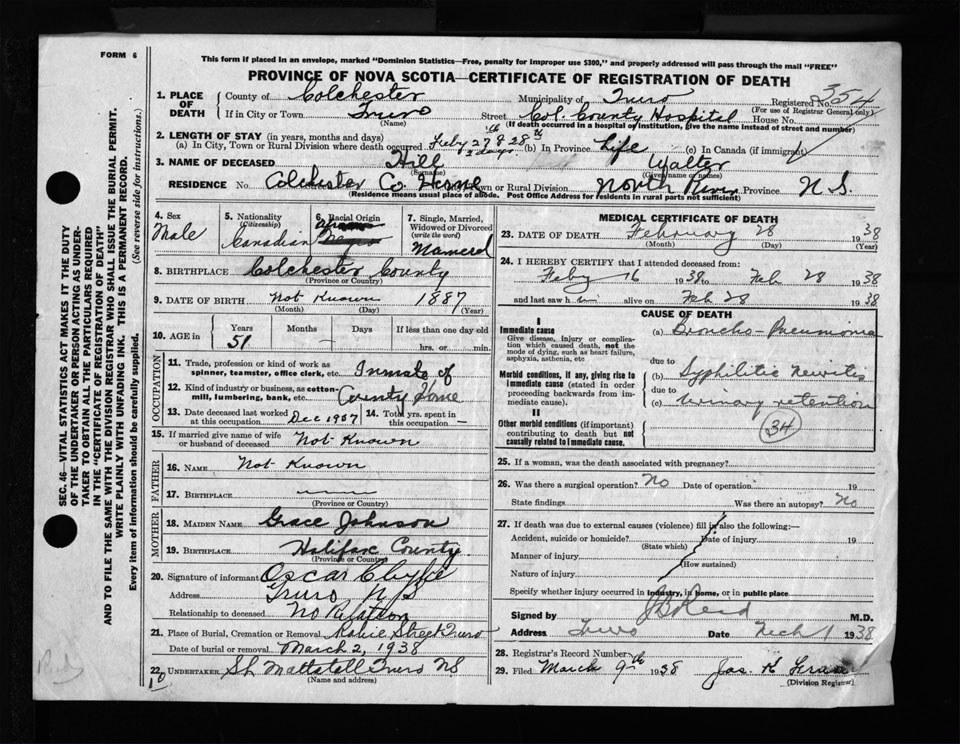 FORM 6
This form if placed in an envelope, marked "Dominion Statistics—Free, penalty for improper use $300," and properly addressed will pass through the mail "FREE"
PROVINCE OF NOVA SCOTIA—CERTIFICATE OF REGISTRATION OF DEATH
SEC. 46—VITAL STATISTICS ACT MAKES IT THE DUTY
OF THE UNDERTAKER OR PERSON ACTING AS UNDER-
TAKER TO OBTAIN ALL THE PARTICULARS REQUIRED
IN THE "CERTIFICATE OF REGISTRATION OF DEATH"
AND TO FILE THE SAME WITH THE DIVISION REGISTRAR WHO SHALL ISSUE THE BURIAL PERMIT.
WRITE PLAINLY WITH UNFADING INK. THIS IS A PERMANENT RECORD.
Every item of information should be carefully supplied. (See reverse side for instructions.)
1. PLACE OF DEATH County of Colchester Municipality of Truro Registered No. 354
If in City or Town Truro Street Col. County Hospital House No. (For use of Registrar General only)
(Name) (If death occurred in a hospital or institution, give the name instead of street and number)
2. LENGTH OF STAY (in years, months and days)
(a) In City, Town or Rural Division where death occurred Feby 27 & 28th (b) In Province Life (c) In Canada (if immigrant)
2 days
3. NAME OF DECEASED Hill Walter
(Surname) (Given name or names)
RESIDENCE No. Colchester Co Home Town or Rural Division North River Province N.S.
(Residence means usual place of abode. Post Office Address for residents in rural parts not sufficient)
4. Sex Male
5. Nationality (Citizenship) Canadian
6. Racial Origin Negro
7. Single, Married, Widowed or Divorced (write the word) Married
8. BIRTHPLACE Colchester County
(Province or Country)
9. DATE OF BIRTH Not Known 1887
(Month) (Day) (Year)
10. AGE in Years Months Days If less than one day old
51 — hrs. or min.
OCCUPATION
11. Trade, profession or kind of work as spinner, teamster, office clerk, etc. Inmate of
12. Kind of industry or business, as cotton-mill, lumbering, bank, etc. County Home
13. Date deceased last worked at this occupation Dec 1907 14. Total yrs. spent in this occupation —
15. If married give name of wife or husband of deceased Not Known
FATHER
16. NAME Not Known
17. BIRTHPLACE
(Province or Country)
MOTHER
18. MAIDEN NAME Grace Johnson
19. BIRTHPLACE Halifax County
(Province or Country)
20. Signature of informant Oscar Clyke
Address Truro N.S.
Relationship to deceased No Relation
21. Place of Burial, Cremation or Removal Robie Street Truro
Date of burial or removal March 2, 1938
22. UNDERTAKER Mattatall Truro NS
(Name and address)
MEDICAL CERTIFICATE OF DEATH
23. DATE OF DEATH February 28 1938
(Month) (Day) (Year)
24. I HEREBY CERTIFY that I attended deceased from:
Feby 16 1938 to Feb 28 1938
and last saw him alive on Feb 28 1938
CAUSE OF DEATH
I
Immediate cause (a) Broncho-Pneumonia
Give disease, injury or complication which caused death, not the mode of dying, such as heart failure, asphyxia, asthenia, etc
due to
Morbid conditions, if any, giving rise to immediate cause (stated in order proceeding backwards from immediate cause). (b) Syphilitic neuritis
due to
(c) Urinary retention
II
Other morbid conditions (if important) contributing to death but not causally related to immediate cause.
34
25. If a woman, was the death associated with pregnancy?
26. Was there a surgical operation? No Date of operation 19
State findings Was there an autopsy? No
27. If death was due to external causes (violence) fill in also the following:—
Accident, suicide or homicide? Date of injury 19
(State which)
Manner of injury
(How sustained)
Nature of injury
Specify whether injury occurred in industry, in home, or in public place
Signed by J B Reid M.D.
Address Truro Date Mch 1 1938
28. Registrar's Record Number
29. Filed March 9th 1938
(Division Registrar)